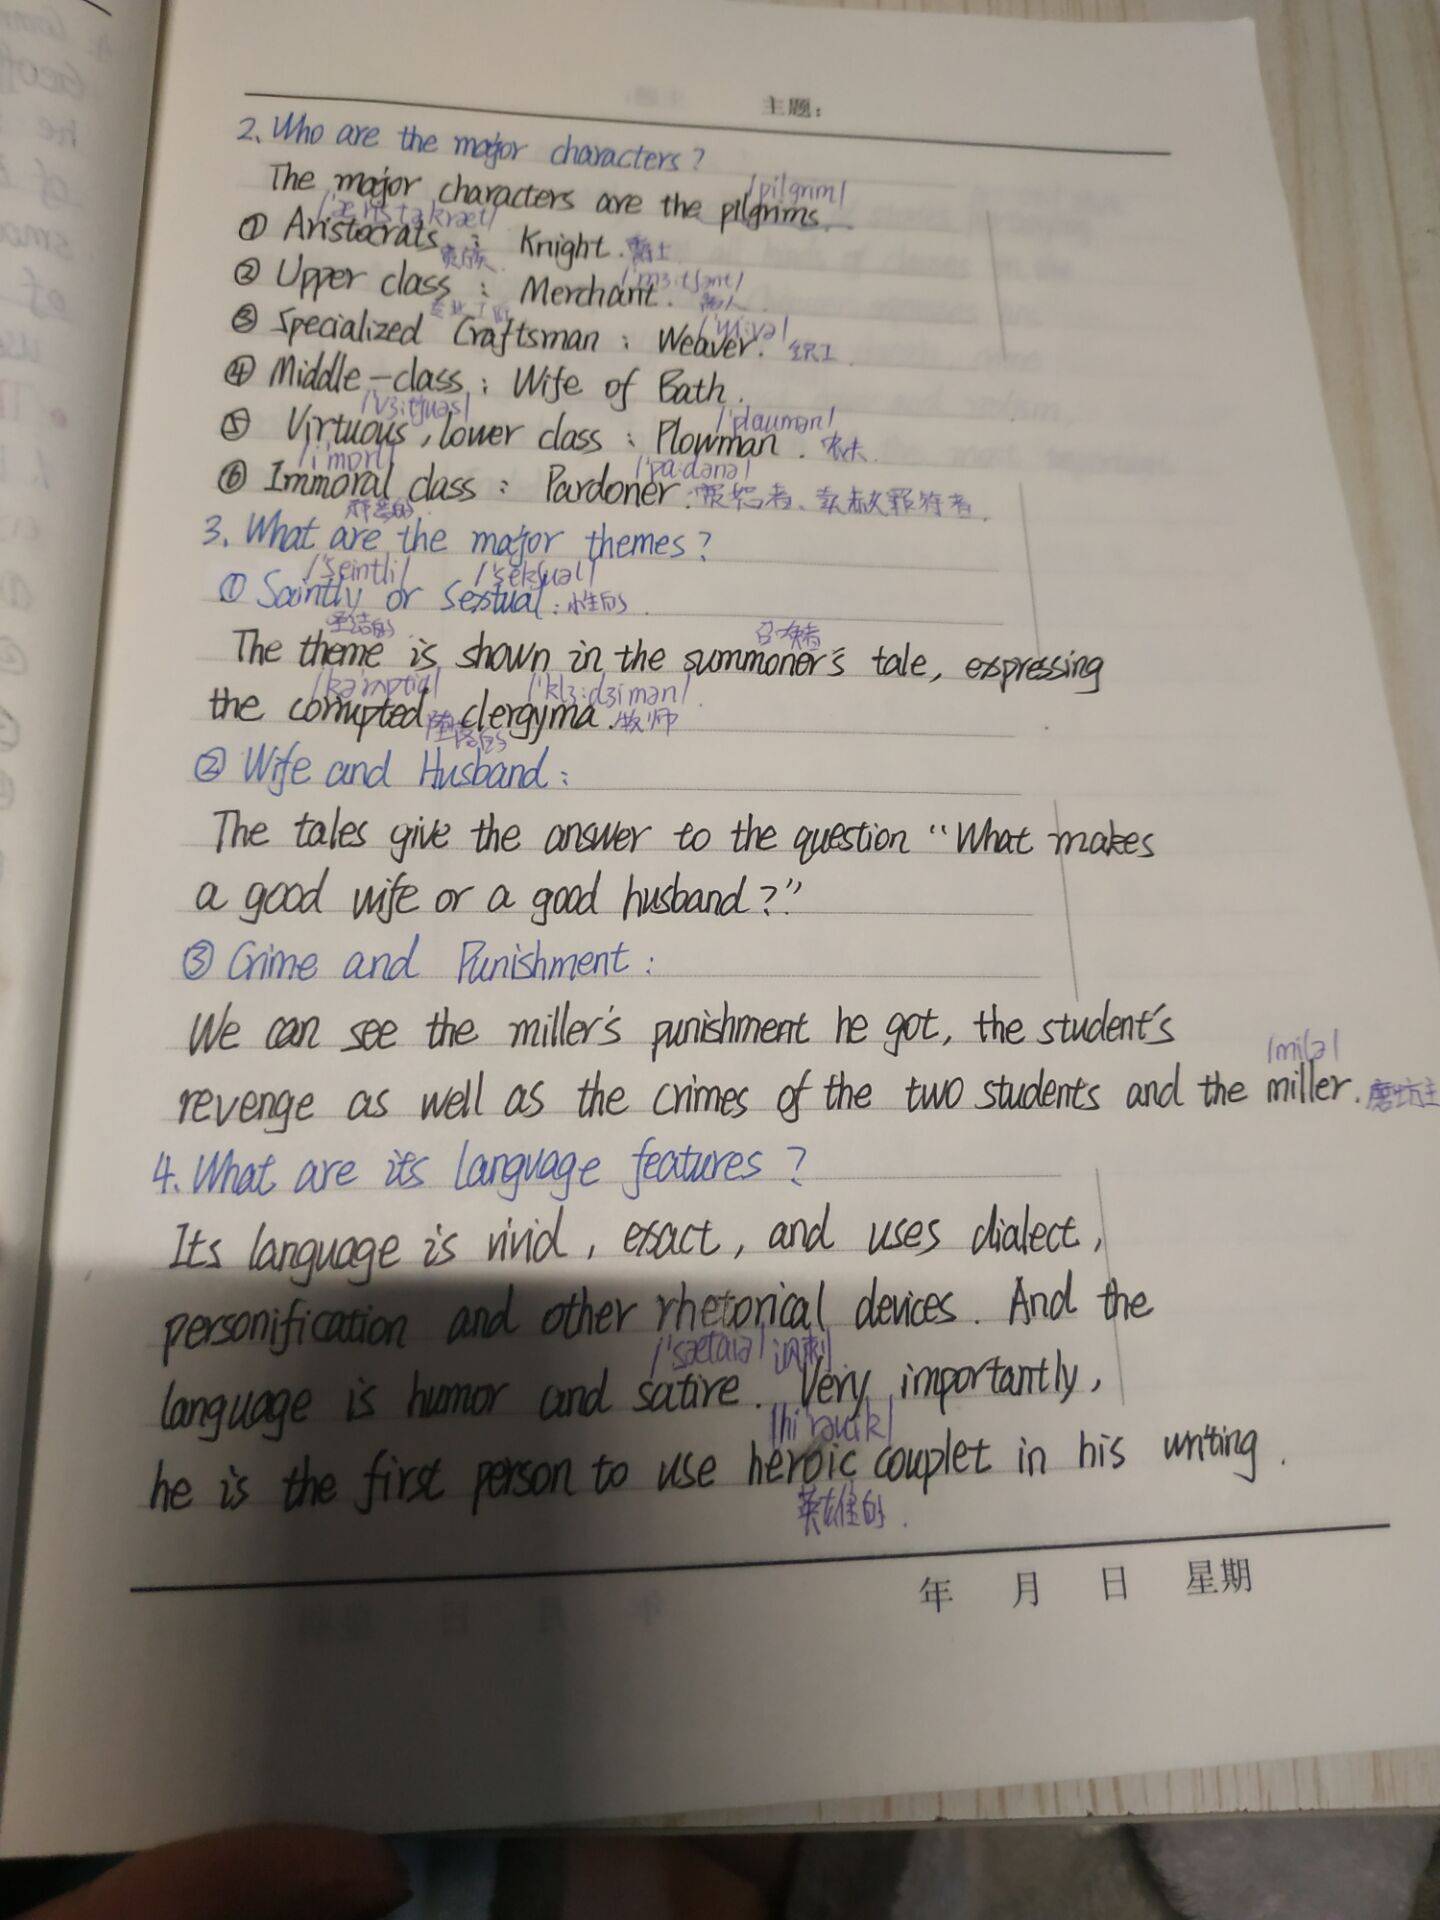 主题:
2. Who are the major characters?
/pilgrim/
The major characters are the pilgrims.
/'æristəkræt/
① Aristocrats : Knight. 爵士
贵族 /'mɜ:tʃənt/
② Upper class : Merchant. 商人
③ Specialized Craftsman : Weaver. 织工
④ Middle-class : Wife of Bath.
/'vɜ:tʃuəs/ /'plaumən/
⑤ Virtuous, lower class : Plowman. 农夫.
/i'mɒrl/ /'pa:dənə/
⑥ Immoral class : Pardoner. 宽恕者、卖赦罪符者.
邪恶的.
3. What are the major themes?
/'seintli/ /'sekʃuəl/
① Saintly or Sextual: 性的.
圣洁的 召唤者
The theme is shown in the summoner's tale, expressing
/'klɜ:dʒimən/
the corrupted clergyma. 牧师
堕落的
② Wife and Husband:
The tales give the answer to the question "What makes
a good wife or a good husband?"
③ Crime and Punishment:
We can see the miller's punishment he got, the student's
/milə/
revenge as well as the crimes of the two students and the miller. 磨坊主
4. What are its language features?
Its language is vivid, exact, and uses dialect,
personification and other rhetorical devices. And the
/'sætaiə/ 讽刺
language is humor and satire. Very importantly,
/hi'rəuik/
he is the first person to use heroic couplet in his writing.
英雄的.
年 月 日 星期